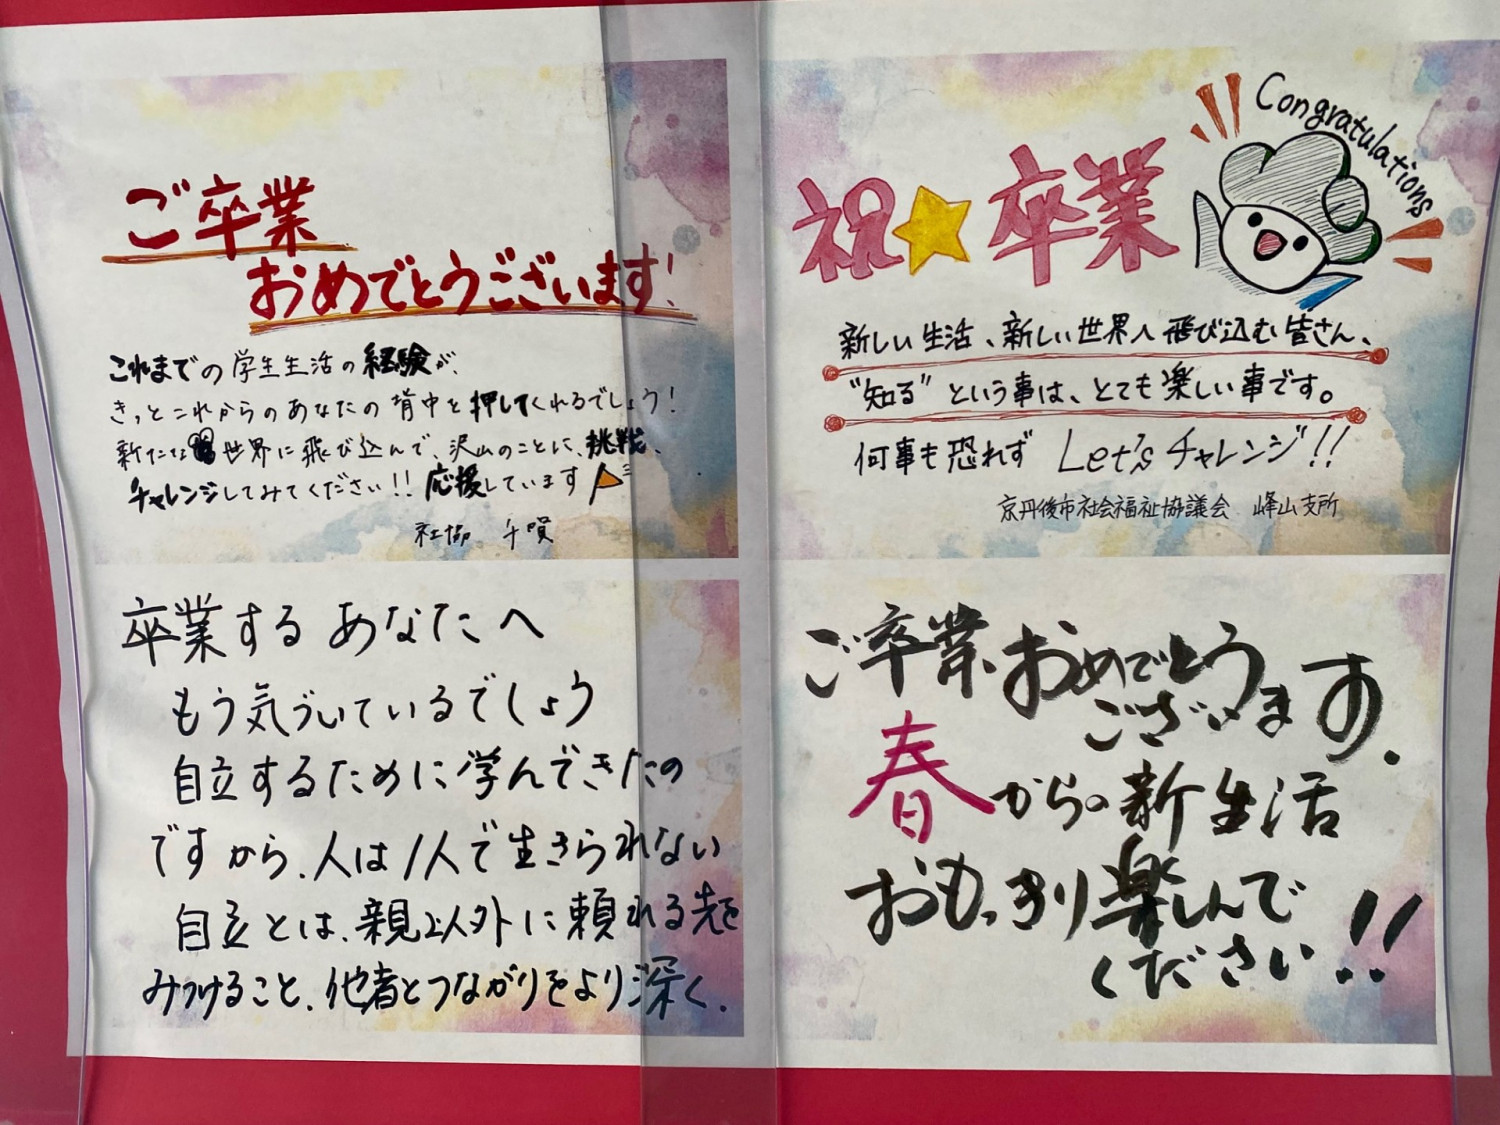 ご卒業
おめでとうございます!
これまでの学生生活の経験が、
きっとこれからのあなたの背中を押してくれるでしょう!
新たな世界に飛び込んで、沢山のことに、挑戦、
チャレンジしてみてください!! 応援しています
社協 千賀
祝★卒業
Congratulations
新しい生活、新しい世界へ飛び込む皆さん、
"知る"という事は、とても楽しい事です。
何事も恐れず Let's チャレンジ!!
京丹後市社会福祉協議会 峰山支所
卒業するあなたへ
もう気づいているでしょう
自立するために学んできたの
ですから、人は1人で生きられない
自立とは、親以外に頼れる先を
みつけること、他者とつながりをより深く.
ご卒業、おめでとう
ございます.
春からの新生活
おもっきり楽しんで
ください!!